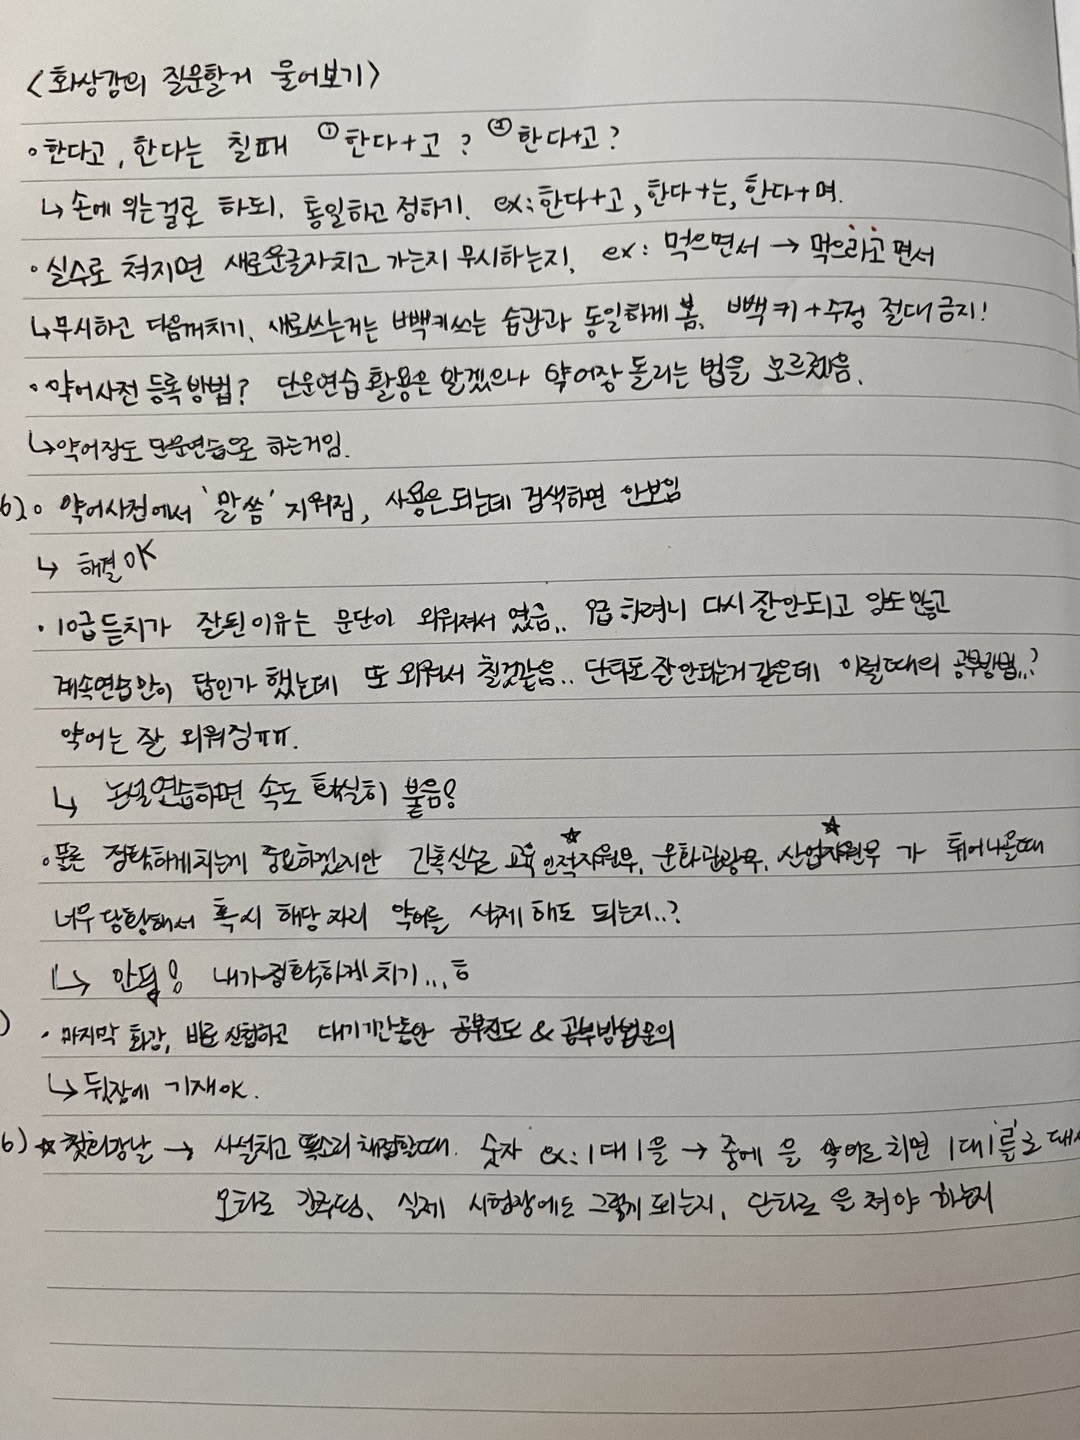 <화상강의 질문할거 물어보기>
◦한다고, 한다는 칠때 ①한다+고? ②한다+고?
↳ 손에 익는걸로 하되, 통일하고 정하기. ex:한다+고, 한다+는, 한다+며.
◦실수로 쳐지면 새로운글자치고 가는지 무시하는지, ex: 먹으면서 → 먹으라고면서
↳무시하고 다음꺼치기, 새로쓰는거는 빽키쓰는 습관과 동일하게 봄. 빽키+수정 절대금지!
·약어사전 등록방법? 단문연습 활용은 알겠으나 약어장 돌리는 법을 모르겠음.
↳약어장도 단문연습으로 하는거임.
6)◦ 약어사전에서 '말씀' 지워짐, 사용은되는데 검색하면 안보임
↳ 해결OK
·10급듣치가 잘된이유는 문단이 외워져서 였음.. 9급하려니 다시 잘안되고 않고
계속연습만이 답인가 했는데 또 외워서 칠것같음.. 단타도 잘안되는거 같은데 이럴때의 공부방법..?
약어는 잘 외워짐ㅠㅠ.
↳ 논설연습하면 속도 확실히 붙음!
·물론 정확하게치는게 중요하겠지만 간혹실수로 교육인적자원부, 문화관광부, 산업자원부 가 튀어나올때
너무당황해서 혹시 해당 자리 약어를 삭제해도 되는지..?
↳ 안됨! 내가정확하게치기...ㅎ
)·마지막 화강, 바로신청하고 대기기간동안 공부진도 & 공부방법문의
↳뒷장에 기재OK.
6)☆첫화강날 → 사설치고 똑소리 채점할때. 숫자 ex:1대1을 → 중에 을 약어로 치면 1대1'를'로
오타로 간주됨. 실제 시험장에도 그렇게되는지, 단타로 을 쳐야 하는지